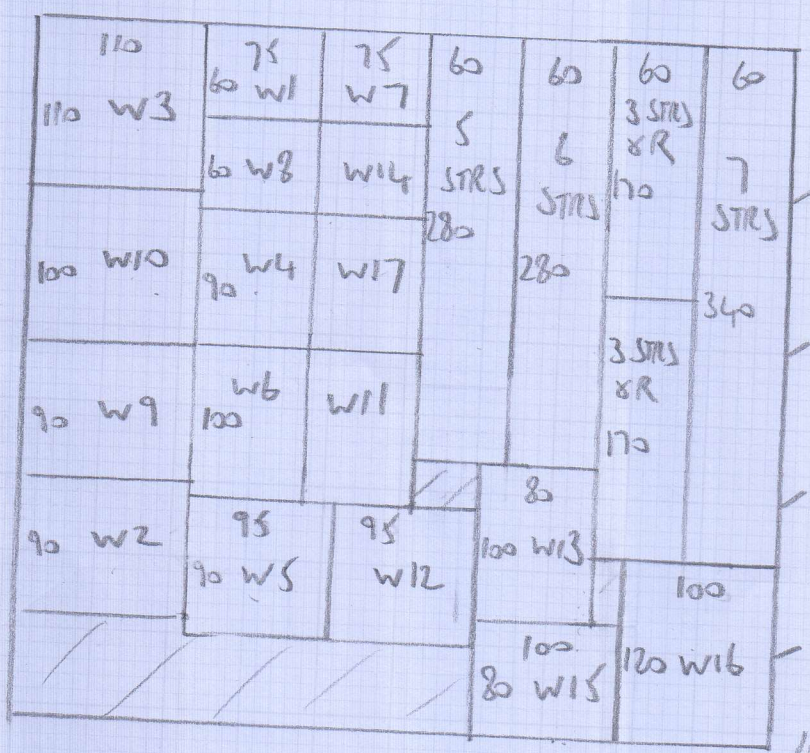 110
110 W3
75
60 W1
75
W7
60
5
STRS
280
60
6
STRS
280
60
3 STRS
&R
170
60
7
STRS
340
60 W8
W14
100 W10
90 W4
W17
3 STRS
&R
170
90 W9
W6
100
W11
90 W2
95
90 W5
95
W12
80
100 W13
100
80 W15
100
120 W16